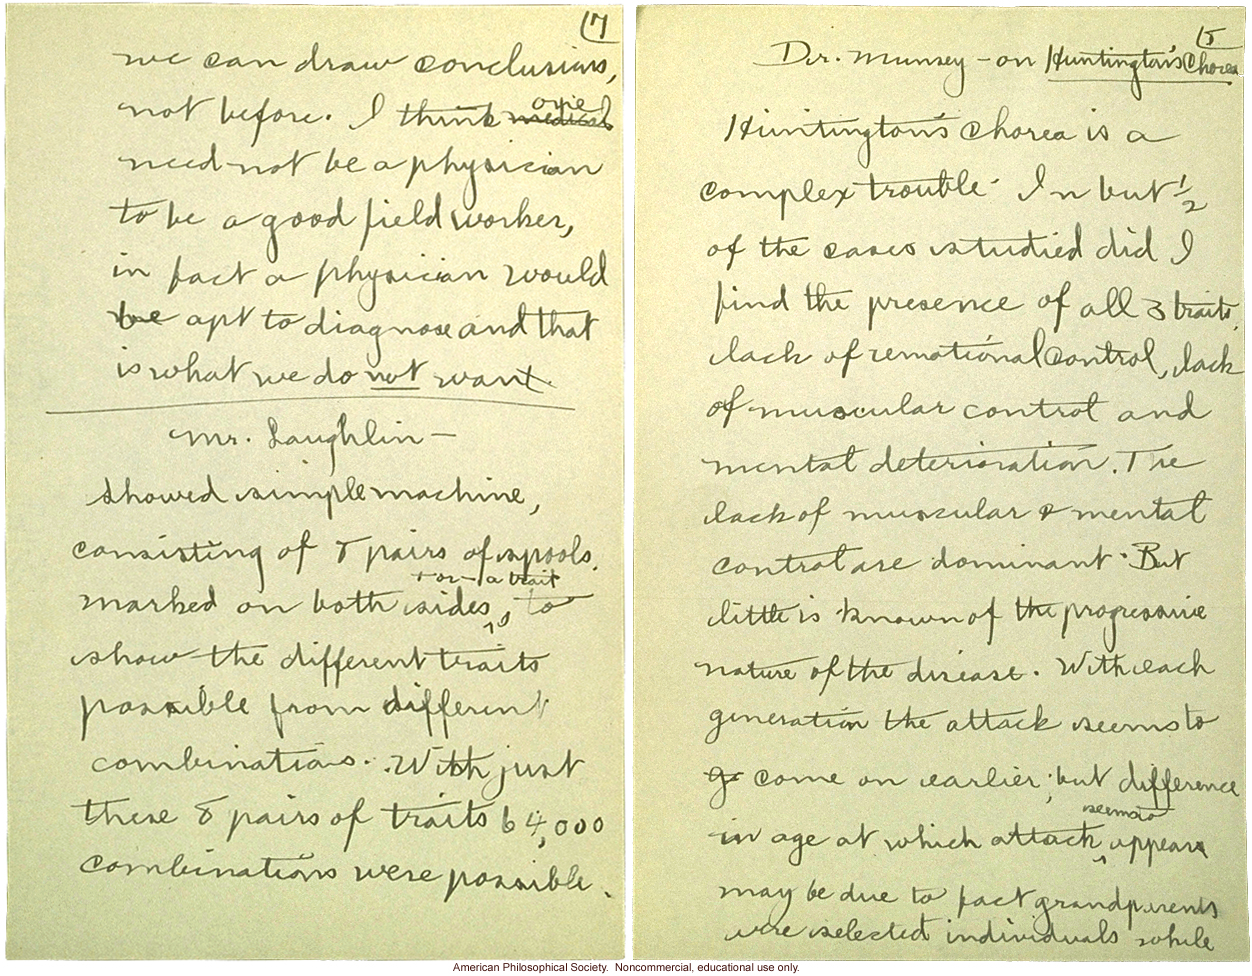 17
we can draw conclusions,
not before. I think medical one
need not be a physician
to be a good field worker,
in fact a physician would
be apt to diagnose and that
is what we do not want.
Mr. Laughlin —
showed simple machine,
consisting of 8 pairs of spools.
+ or - a trait
marked on both sides, to
show the different traits
possible from different
combinations. With just
these 8 pairs of traits 64,000
combinations were possible.
15
Dr. Munsey - on Huntington's Chorea
Huntington's Chorea is a
complex trouble. In but 1/2
of the cases studied did I
find the presence of all 3 traits,
lack of emotional control, lack
of muscular control and
mental deterioration. The
lack of muscular & mental
control are dominant. But
little is known of the progressive
nature of the disease. With each
generation the attack seems to
go come on earlier; but difference
seems to
in age at which attack appears
may be due to fact grandparents
were selected individuals while
American Philosophical Society. Noncommercial, educational use only.